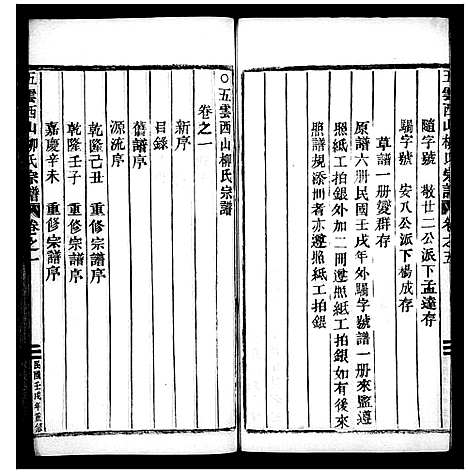 五雲西山柳氏宗譜 卷之五
隨字號 敬廿二公派下孟達存
騶字號 安八公派下楊成存
草譜一册燮群存
原譜六册民國壬戌年外騶字號譜一册來監遵
照紙工拍銀外加二冊遵照紙工拍銀如有後來
照譜規添刪者亦遵照紙工拍銀
○五雲西山柳氏宗譜
卷之一
新序
目錄
舊譜序
源流序
乾隆己丑 重修宗譜序
乾隆壬子 重修宗譜序
嘉慶辛未 重修宗譜序
五雲西山柳氏宗譜 卷之一
民國壬戌年重修